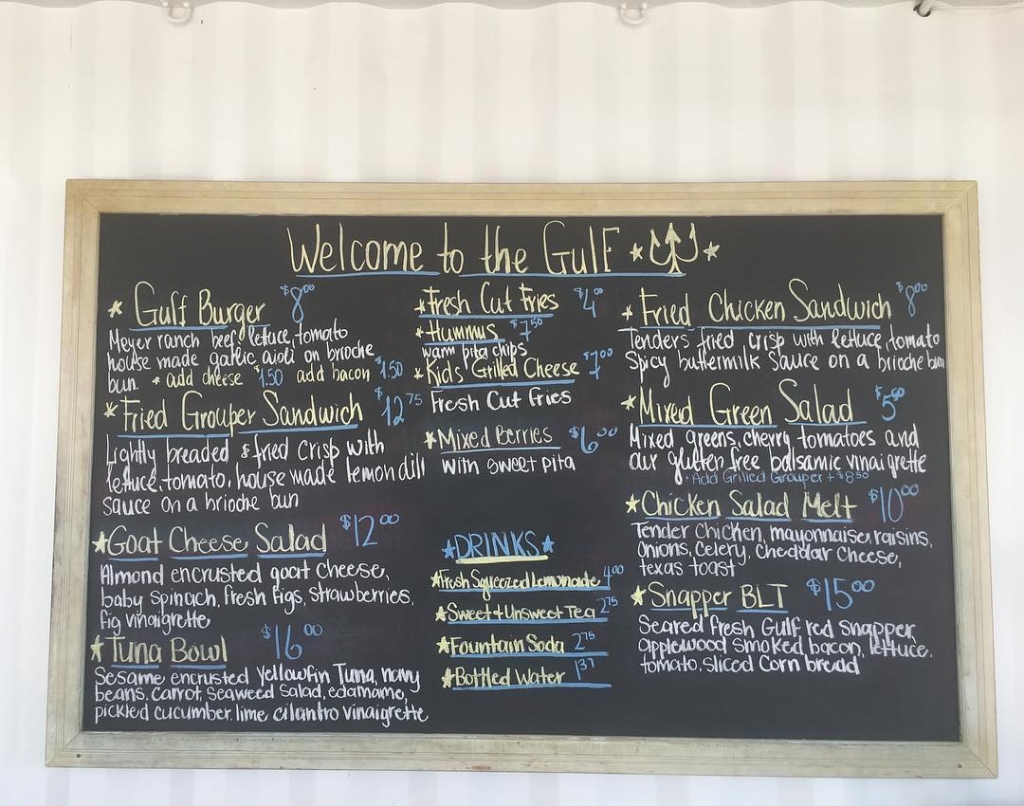 Welcome to the Gulf
Gulf Burger $8.00
Meyer ranch beef, lettuce, tomato
house made garlic aioli on brioche
bun. + add cheese $1.50 add bacon $1.50
Fried Grouper Sandwich $12.75
Lightly breaded & fried crisp with
lettuce, tomato, house made lemon dill
sauce on a brioche bun
Goat Cheese Salad $12.00
Almond encrusted goat cheese,
baby spinach, fresh figs, strawberries,
fig vinaigrette
Tuna Bowl $16.00
Sesame encrusted Yellowfin Tuna, navy
beans, carrot, seaweed salad, edamame,
pickled cucumber, lime cilantro vinaigrette
Fresh Cut Fries $4.00
Hummus $7.50
warm pita chips
Kids' Grilled Cheese $7.00
Fresh Cut Fries
Mixed Berries $6.00
with sweet pita
DRINKS
Fresh Squeezed Lemonade 4.00
Sweet + Unsweet Tea 2.75
Fountain Soda 2.75
Bottled Water
Fried Chicken Sandwich $8.00
Tenders fried crisp with lettuce, tomato
Spicy buttermilk sauce on a brioche bun
Mixed Green Salad
Mixed greens, cherry tomatoes and
our gluten free balsamic vinaigrette
· Add Grilled Grouper + $8.50
Chicken Salad Melt $10.00
Tender chicken, mayonnaise, raisins,
Onions, celery, cheddar cheese,
texas toast
Snapper BLT $15.00
Seared fresh Gulf red snapper,
applewood smoked bacon, lettuce,
tomato, sliced corn bread